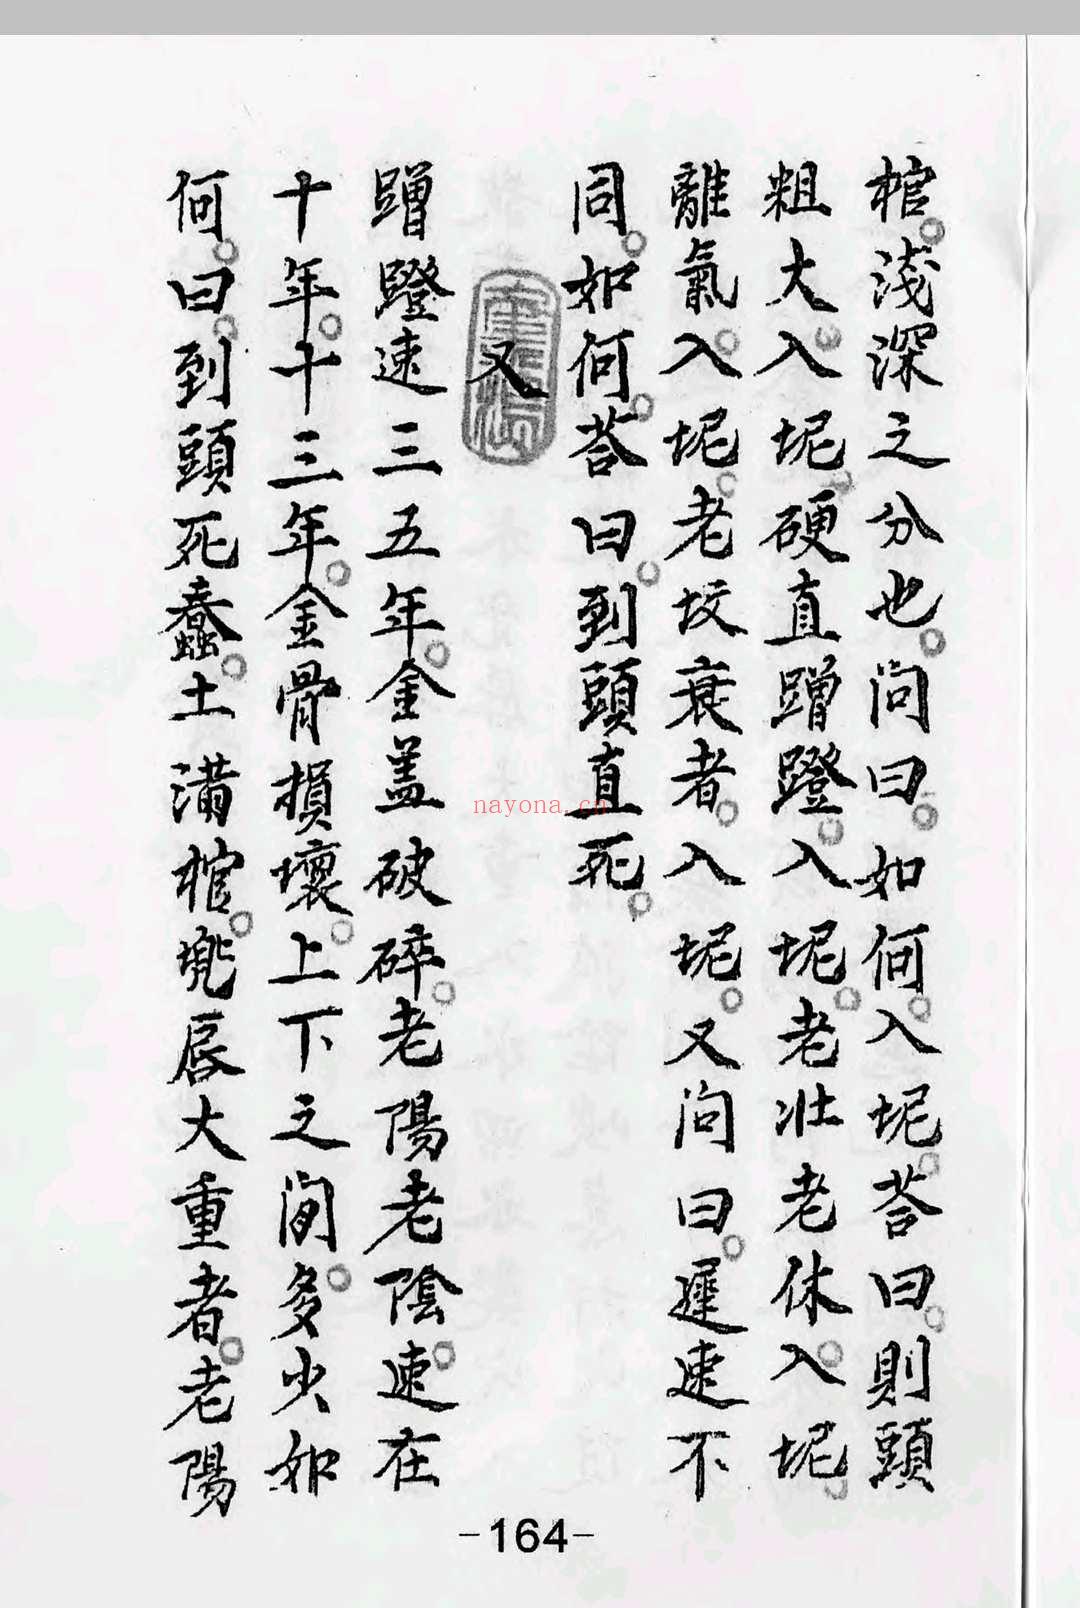 棺。淺深之分也。問曰。如何。入坭。荅曰。則頭
粗大。入坭。硬直蹭蹬。入坭。老壯老休。入坭。
離氣。入坭。老坟衰者。入坭。又問曰。遲速不
同。如何。荅曰。到頭直死。
又
蹭蹬速三五年。金盖破碎。老陽老陰。速在
十年。十三年。金骨損壞。上下之間。多少如
何。曰。到頭死蠢。土滿棺。兠唇大重者。老陽
nayona.cn
-164-